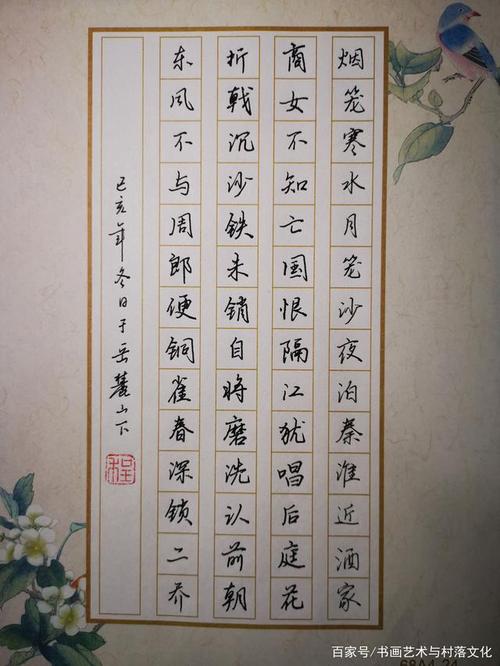 烟笼寒水月笼沙夜泊秦淮近酒家
商女不知亡国恨隔江犹唱后庭花
折戟沉沙铁未销自将磨洗认前朝
东风不与周郎便铜雀春深锁二乔
己亥年冬日于岳麓山下
程
百家号/书画艺术与村落文化